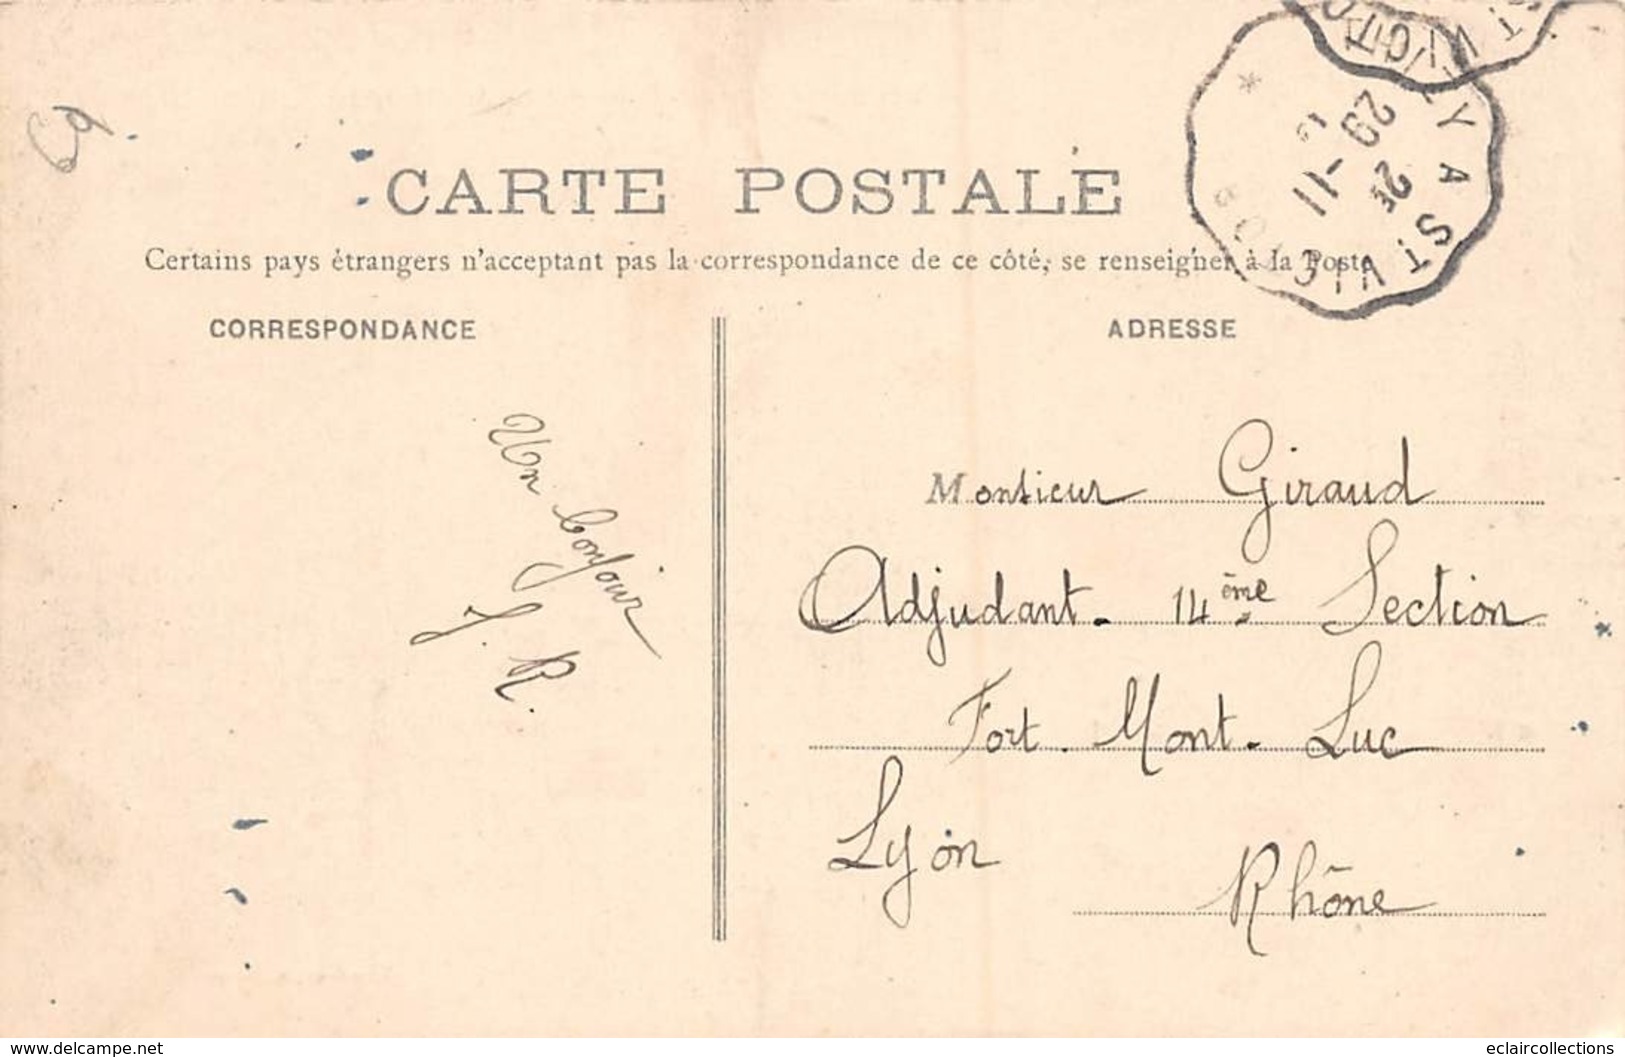 CARTE POSTALE
Certains pays étrangers n'acceptant pas la correspondance de ce côté, se renseigner à la Poste
CORRESPONDANCE
ADRESSE
Un bonjour
J. R.
Monsieur Giraud
Adjudant. 14ème Section
Fort. Mont. Luc
Lyon
Rhône
Y A ST VICTOR
2E
29 -11
69
www.delcampe.net
eclaircollections